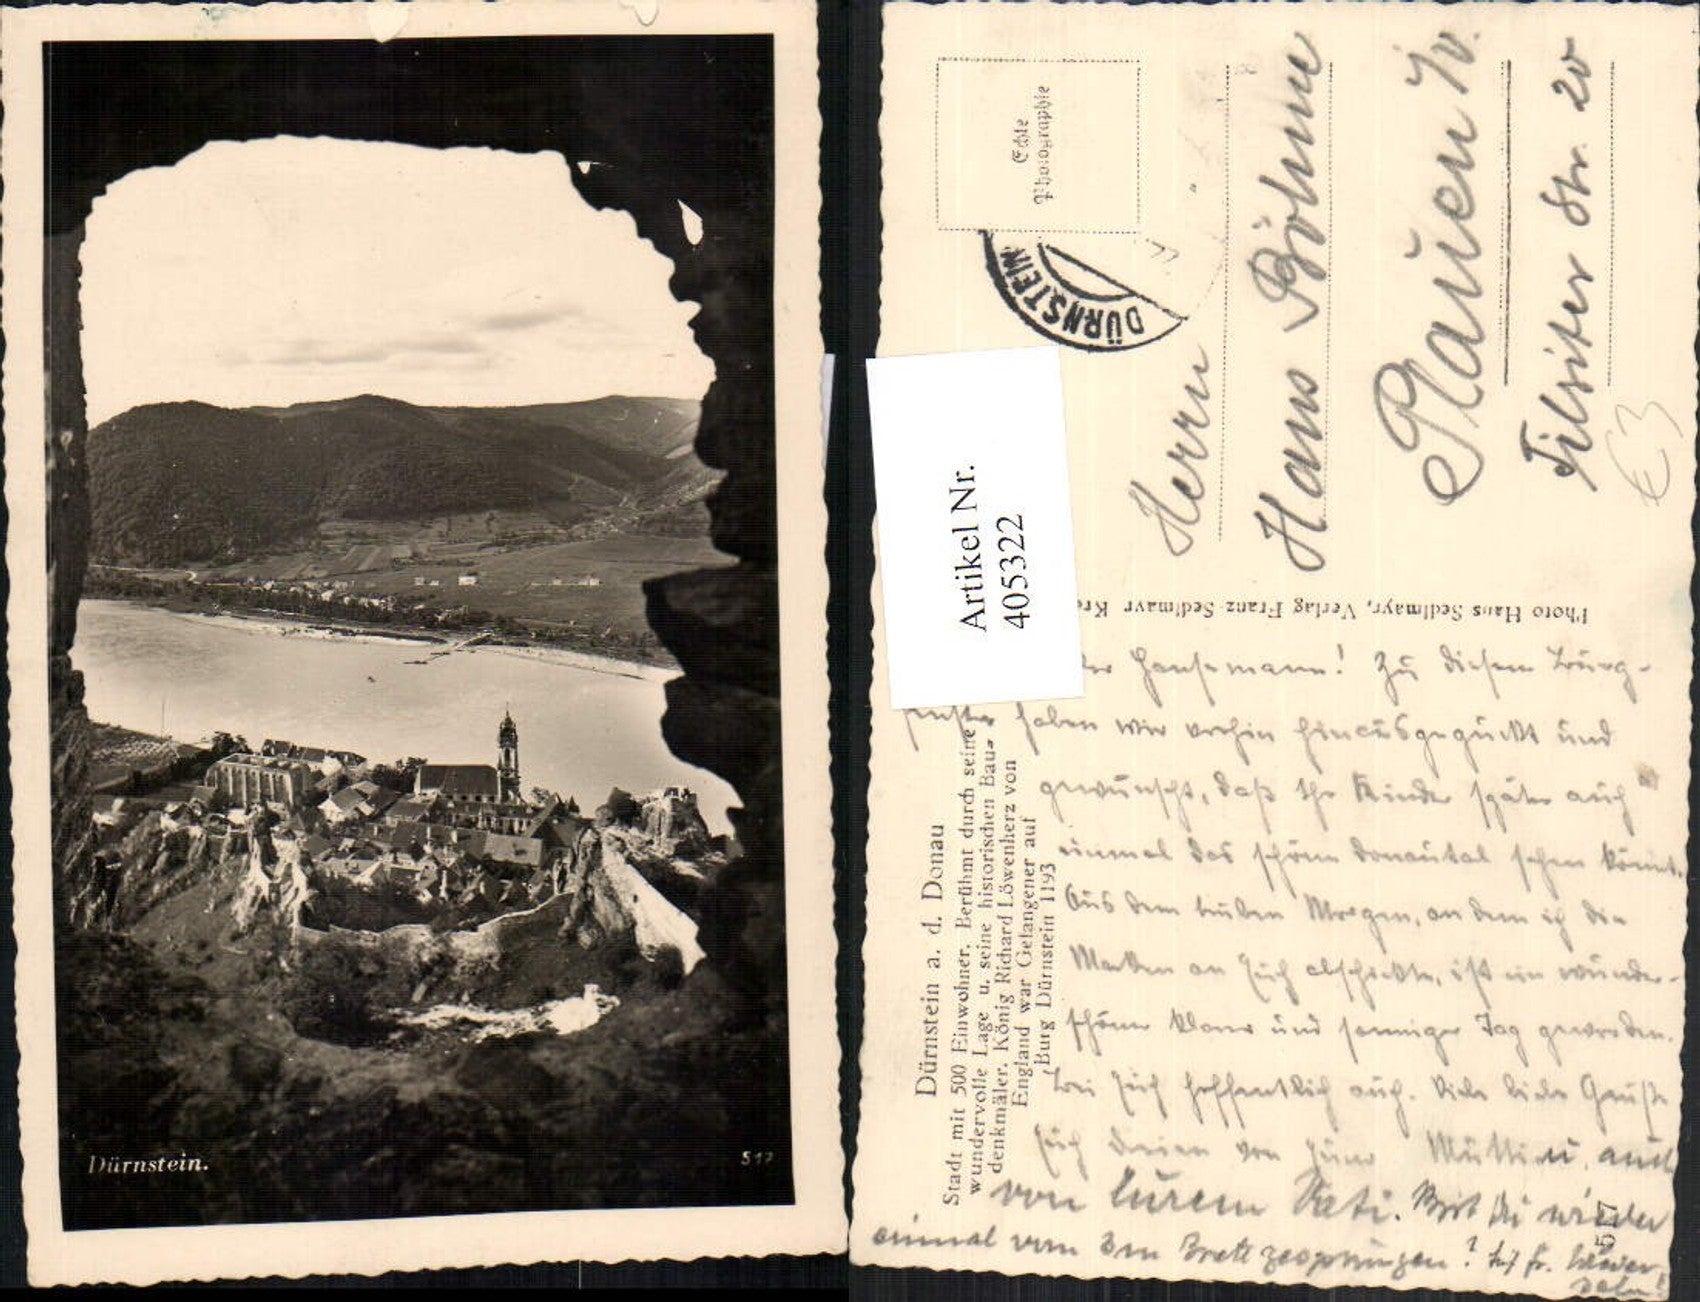 Dürnstein.
517
Echte
Photographie
DÜRNSTEIN
Herrn
Hans Böhme
Plauen i/V.
Tilsiter Str. 20
€3
Artikel Nr.
4053322
Photo Hans Sedlmayr, Verlag Franz Sedlmayr Kre
Dürnstein a. d. Donau
Stadt mit 500 Einwohner. Berühmt durch seine
wundervolle Lage u. seine historischen Bau-
denkmäler. König Richard Löwenherz von
England war Gefangener auf
Burg Dürnstein 1193
Hansemann! Zu diesem Burg-
fenster haben wir vorhin hinausgeguckt und
gewünscht, daß Ihr Kinder später auch
einmal das schöne Donautal sehen könnt.
Aus dem trüben Morgen, an dem ich die
Marken an Euch abschickte, ist ein wunder-
schöner klarer und sonniger Tag geworden.
Bei Euch hoffentlich auch. Viele liebe Grüße
Euch dreien von Eurer Mutti u. auch
von Eurem Vati. Bist Du wieder
einmal vom 3 m Brett gesprungen? fr. Wieder-
sehn!
517